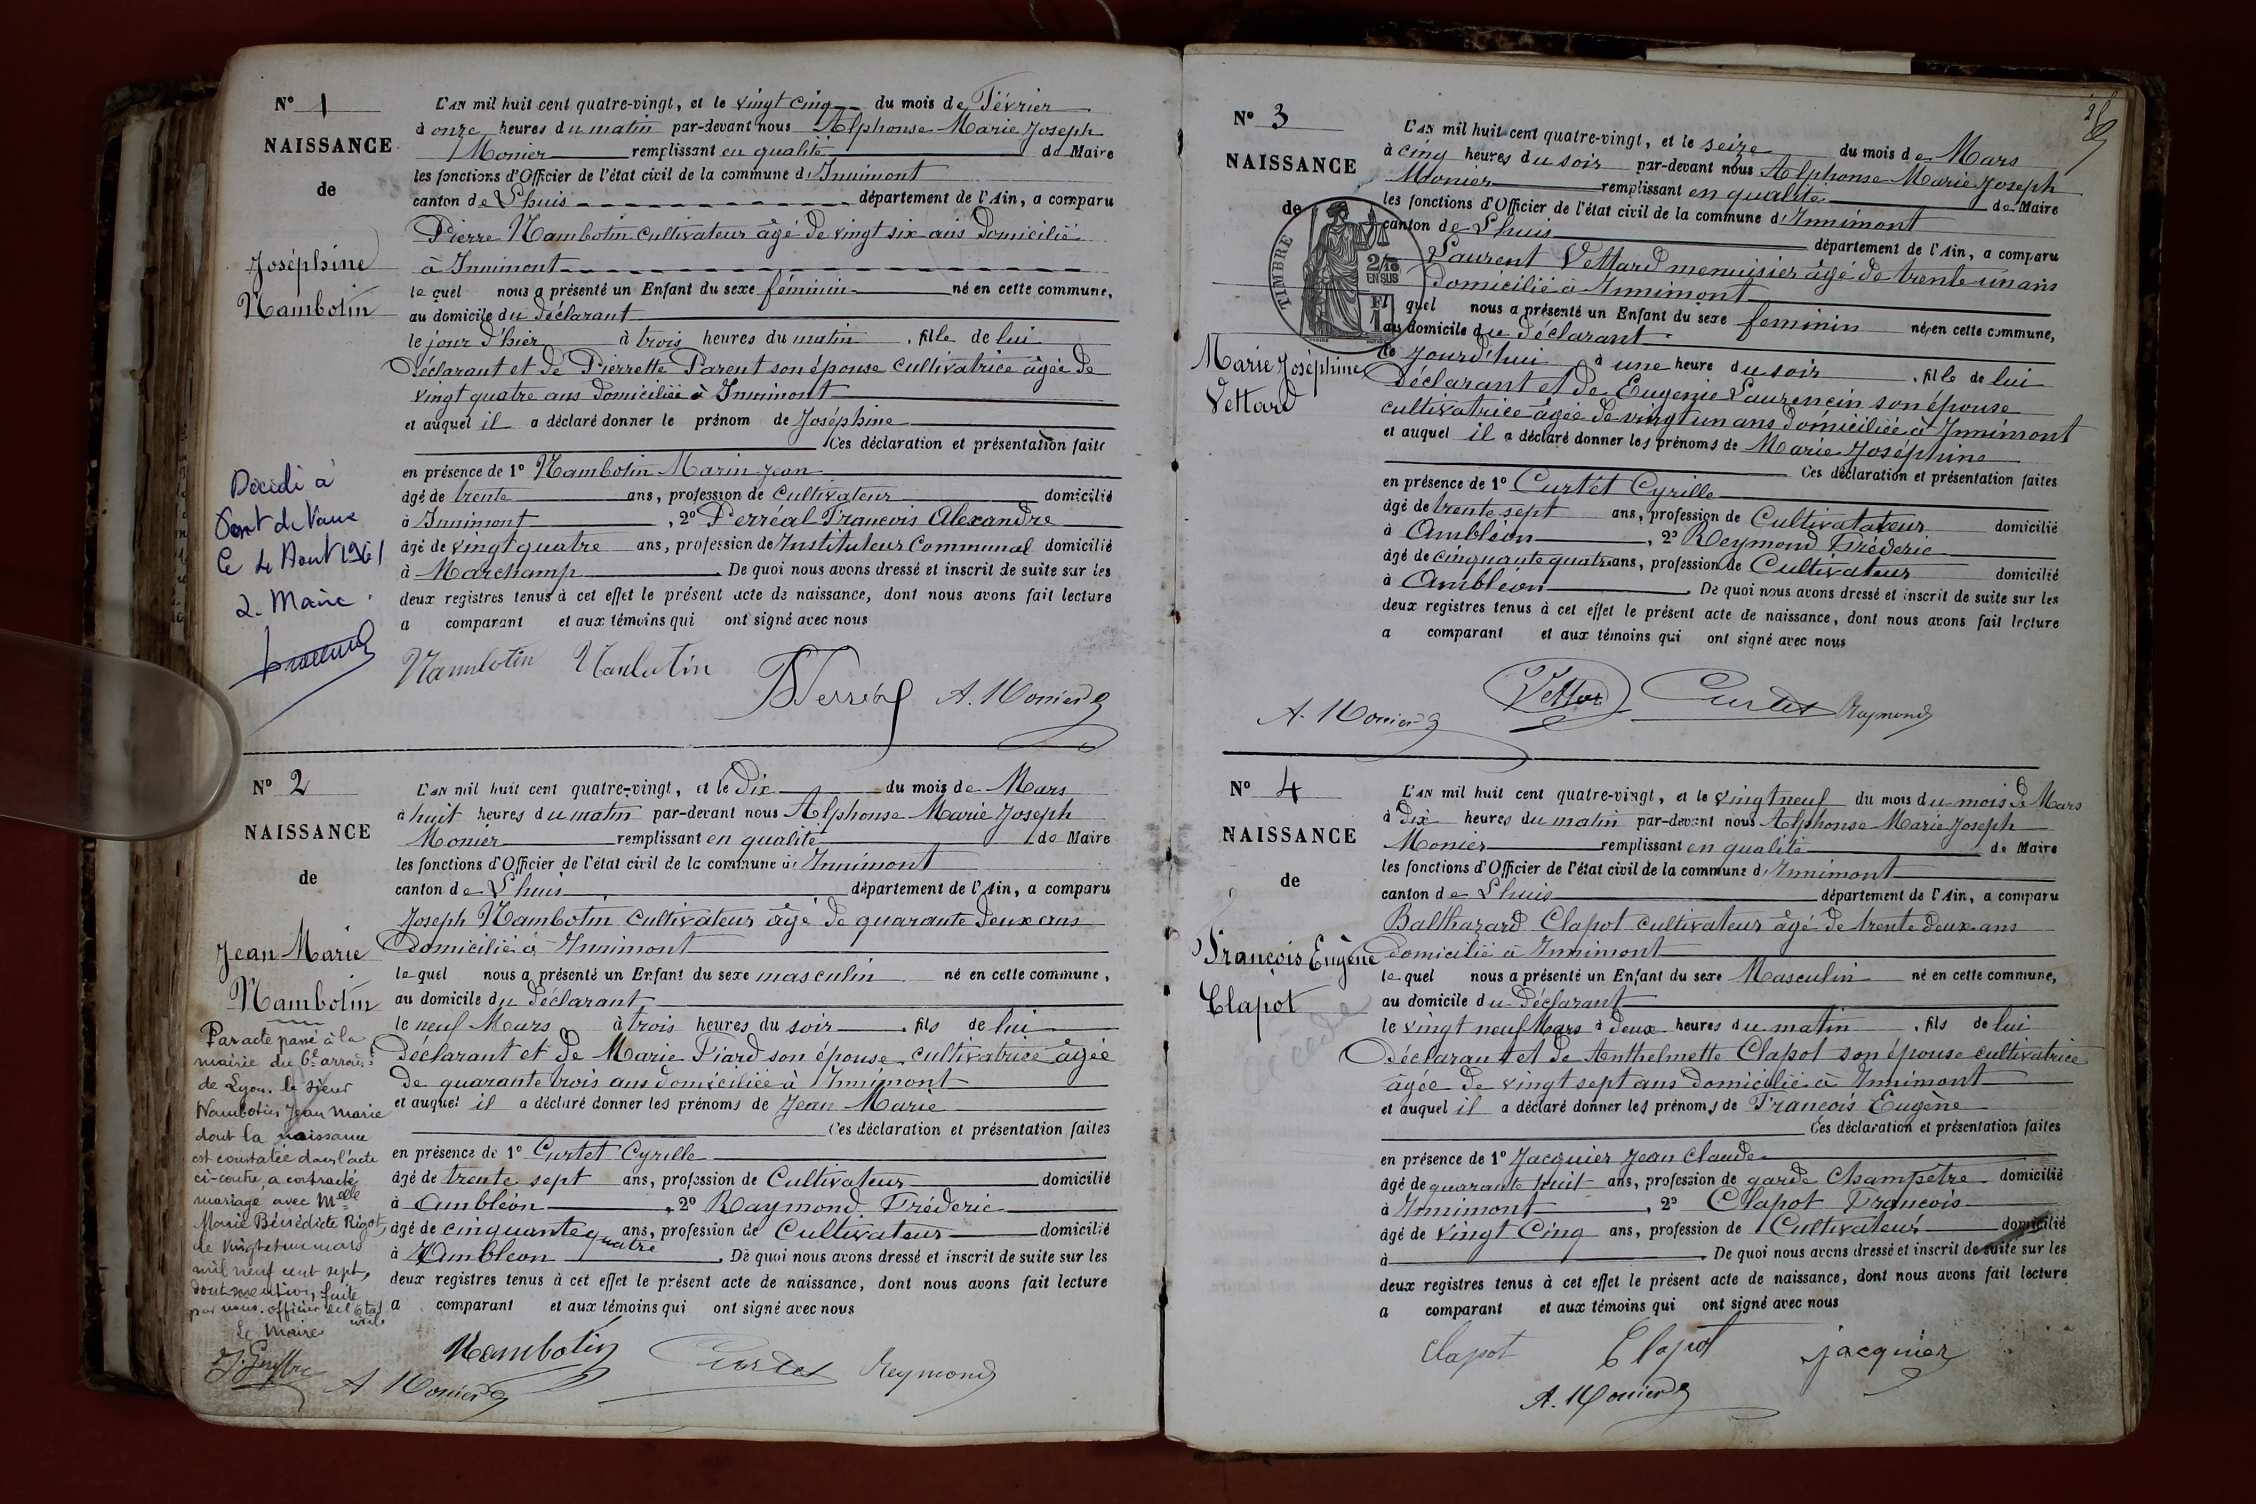 N° 1
NAISSANCE
de
Joséphine
Nambotin
Décédé à
Pont de Vaux
le 4 Août 1961
L. Maire
L'AN mil huit cent quatre-vingt, et le vingt cinq du mois de Février
à onze heures du matin par-devant nous Alphonse Marie Joseph
Monier remplissant en qualité de Maire
les fonctions d'Officier de l'état civil de la commune d'Innimont
canton de Lhuis département de l'Ain, a comparu
Pierre Nambotin cultivateur âgé de vingt six ans domicilié
à Innimont
le quel nous a présenté un Enfant du sexe féminin né en cette commune,
au domicile du déclarant
le jour d'hier à trois heures du matin, fille de lui
déclarant et de Pierrette Parent son épouse cultivatrice âgée de
vingt quatre ans domiciliée à Innimont
et auquel il a déclaré donner le prénom de Joséphine
Ces déclaration et présentation faite
en présence de 1° Nambotin Marin Jean
âgé de trente ans, profession de cultivateur domicilié
à Innimont, 2° Perréal François Alexandre
âgé de vingt quatre ans, profession de Instituteur Communal domicilié
à Marchamp. De quoi nous avons dressé et inscrit de suite sur les
deux registres tenus à cet effet le présent acte de naissance, dont nous avons fait lecture
a comparant et aux témoins qui ont signé avec nous
Nambotin Nambotin Perréal A. Monier
N° 2
NAISSANCE
de
Jean Marie
Nambotin
Par acte passé à la
mairie du 6e arrond.t
de Lyon. le sieur
Nambotin Jean Marie
dont la naissance
est constatée dans l'acte
ci-contre, a contracté
mariage avec Melle
Marie Bénédicte Rigot,
le vingt et un mars
mil neuf cent sept,
dont mention, faite
par nous. officier de l'état
civil.
Le Maire
L'AN mil huit cent quatre-vingt, et le dix du mois de Mars
à huit heures du matin par-devant nous Alphonse Marie Joseph
Monier remplissant en qualité de Maire
les fonctions d'Officier de l'état civil de la commune d'Innimont
canton de Lhuis département de l'Ain, a comparu
Joseph Nambotin cultivateur âgé de quarante deux ans
domicilié à Innimont
le quel nous a présenté un Enfant du sexe masculin né en cette commune,
au domicile du déclarant
le neuf Mars à trois heures du soir, fils de lui
déclarant et de Marie Piard son épouse cultivatrice âgée
de quarante trois ans domiciliée à Innimont
et auquel il a déclaré donner les prénoms de Jean Marie
Ces déclaration et présentation faites
en présence de 1° Curtet Cyrille
âgé de trente sept ans, profession de Cultivateur domicilié
à Ambléon, 2° Raymond Fréderic
âgé de cinquante quatre ans, profession de Cultivateur domicilié
à Ambléon. De quoi nous avons dressé et inscrit de suite sur les
deux registres tenus à cet effet le présent acte de naissance, dont nous avons fait lecture
a comparant et aux témoins qui ont signé avec nous
Nambotin Curtet Reymond
A Monier
25
N° 3
NAISSANCE
de
TIMBRE
2/10
EN SUS
Marie Joséphine
Vettard
L'AN mil huit cent quatre-vingt, et le seize du mois de Mars
à cinq heures du soir par-devant nous Alphonse Marie Joseph
Monier remplissant en qualité de Maire
les fonctions d'Officier de l'état civil de la commune d'Innimont
canton de Lhuis département de l'Ain, a comparu
Laurent Vettard menuisier âgé de trente un ans
domicilié à Innimont
quel nous a présenté un Enfant du sexe feminin née en cette commune,
au domicile du déclarant
le jourd'hui à une heure du soir, fille de lui
déclarant et de Eugenie Laurencin son épouse
cultivatrice âgée de vingt un ans domiciliée à Innimont
et auquel il a déclaré donner les prénoms de Marie Joséphine
Ces déclaration et présentation faites
en présence de 1° Curtet Cyrille
âgé de trente sept ans, profession de Cultivatateur domicilié
à Ambléon, 2° Reymond Fréderic
âgé de cinquante quatre ans, profession de Cultivateur domicilié
à Ambléon. De quoi nous avons dressé et inscrit de suite sur les
deux registres tenus à cet effet le présent acte de naissance, dont nous avons fait lecture
a comparant et aux témoins qui ont signé avec nous
A. Monier Vettard Curtet Raymond
N° 4
NAISSANCE
de
François Eugène
Clapot
L'AN mil huit cent quatre-vingt, et le vingt neuf du mois du mois de Mars
à dix heures du matin par-devant nous Alphonse Marie Joseph
Monier remplissant en qualité de Maire
les fonctions d'Officier de l'état civil de la commune d'Innimont
canton de Lhuis département de l'Ain, a comparu
Balthazard Clapot cultivateur âgé de trente deux ans
domicilié à Innimont
le quel nous a présenté un Enfant du sexe Masculin né en cette commune,
au domicile du déclarant
le vingt neuf Mars à deux heures du matin, fils de lui
déclarant et de Anthelmette Clapot son épouse cultivatrice
âgée de vingt sept ans domicilié à Innimont
et auquel il a déclaré donner les prénoms de François Eugène
Ces déclaration et présentation faites
en présence de 1° Jacquier Jean Claude
âgé de quarante huit ans, profession de garde Champêtre domicilié
à Innimont, 2° Clapot François
âgé de vingt Cinq ans, profession de Cultivateur domicilié
à . De quoi nous avons dressé et inscrit de suite sur les
deux registres tenus à cet effet le présent acte de naissance, dont nous avons fait lecture
a comparant et aux témoins qui ont signé avec nous
Clapot Clapot jacquier
A. Monier